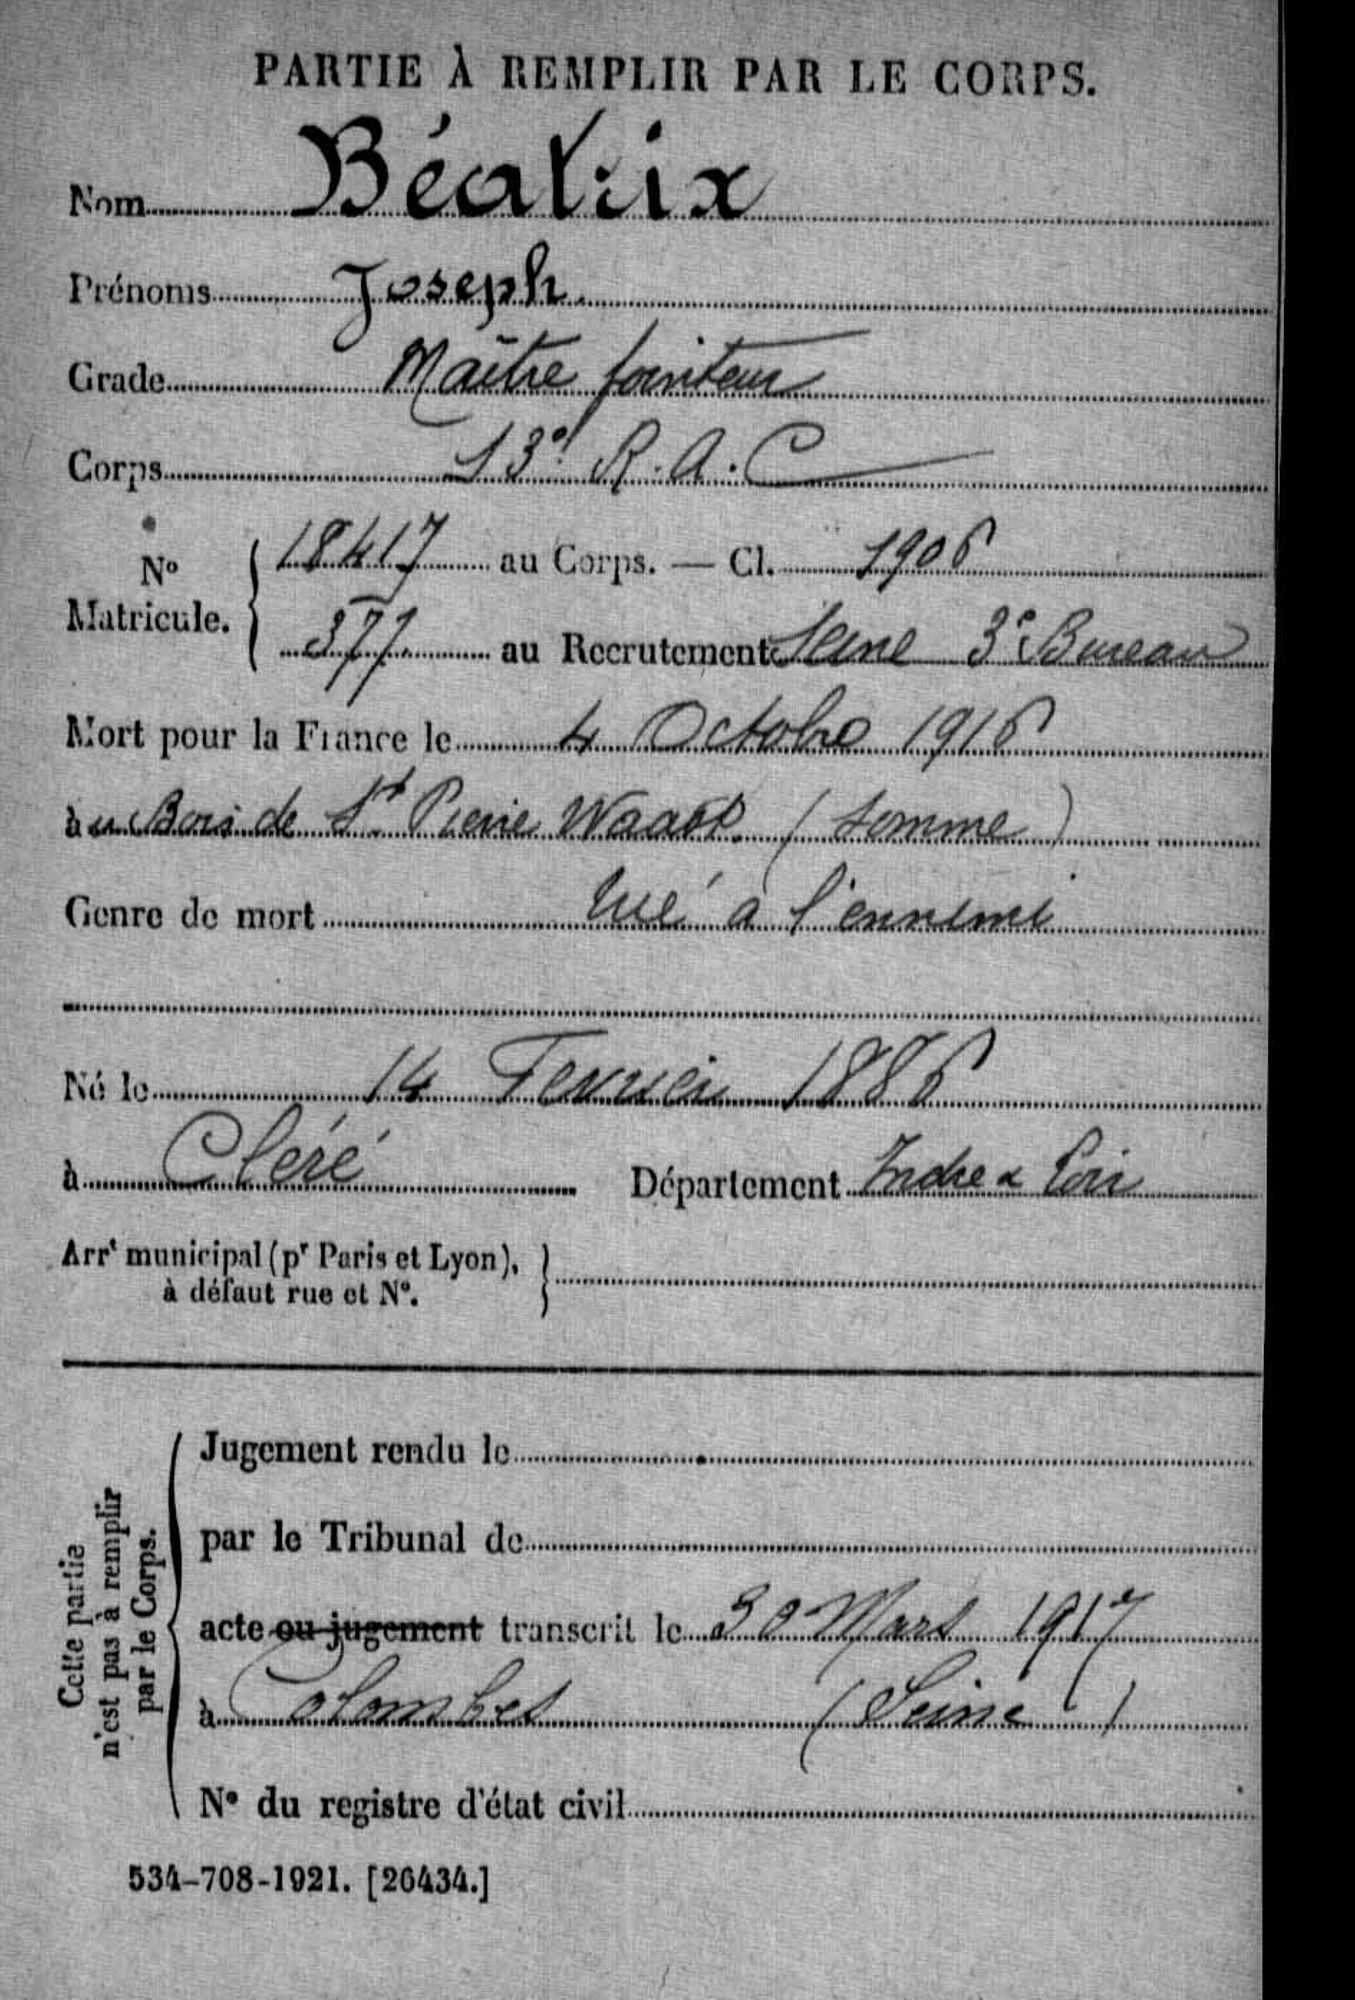 PARTIE À REMPLIR PAR LE CORPS.
Nom Béatrix
Prénoms Joseph
Grade Maître pointeur
Corps 13e R. A. C
No Matricule. 18417 au Corps. — Cl. 1906
377 au Recrutement Seine 3e Bureau
Mort pour la France le 4 Octobre 1916
au Bois de St Pierre Waast (Somme)
Genre de mort tué à l'ennemi
Né le 14 Fevrier 1886
à Cléré Département Indre & Loir
Arrt municipal (pr Paris et Lyon),
à défaut rue et No.
Cette partie
n'est pas à remplir
par le Corps.
Jugement rendu le
par le Tribunal de
acte ou jugement transcrit le 30 Mars 1917
à Colombes (Seine)
No du registre d'état civil
534-708-1921. [26434.]